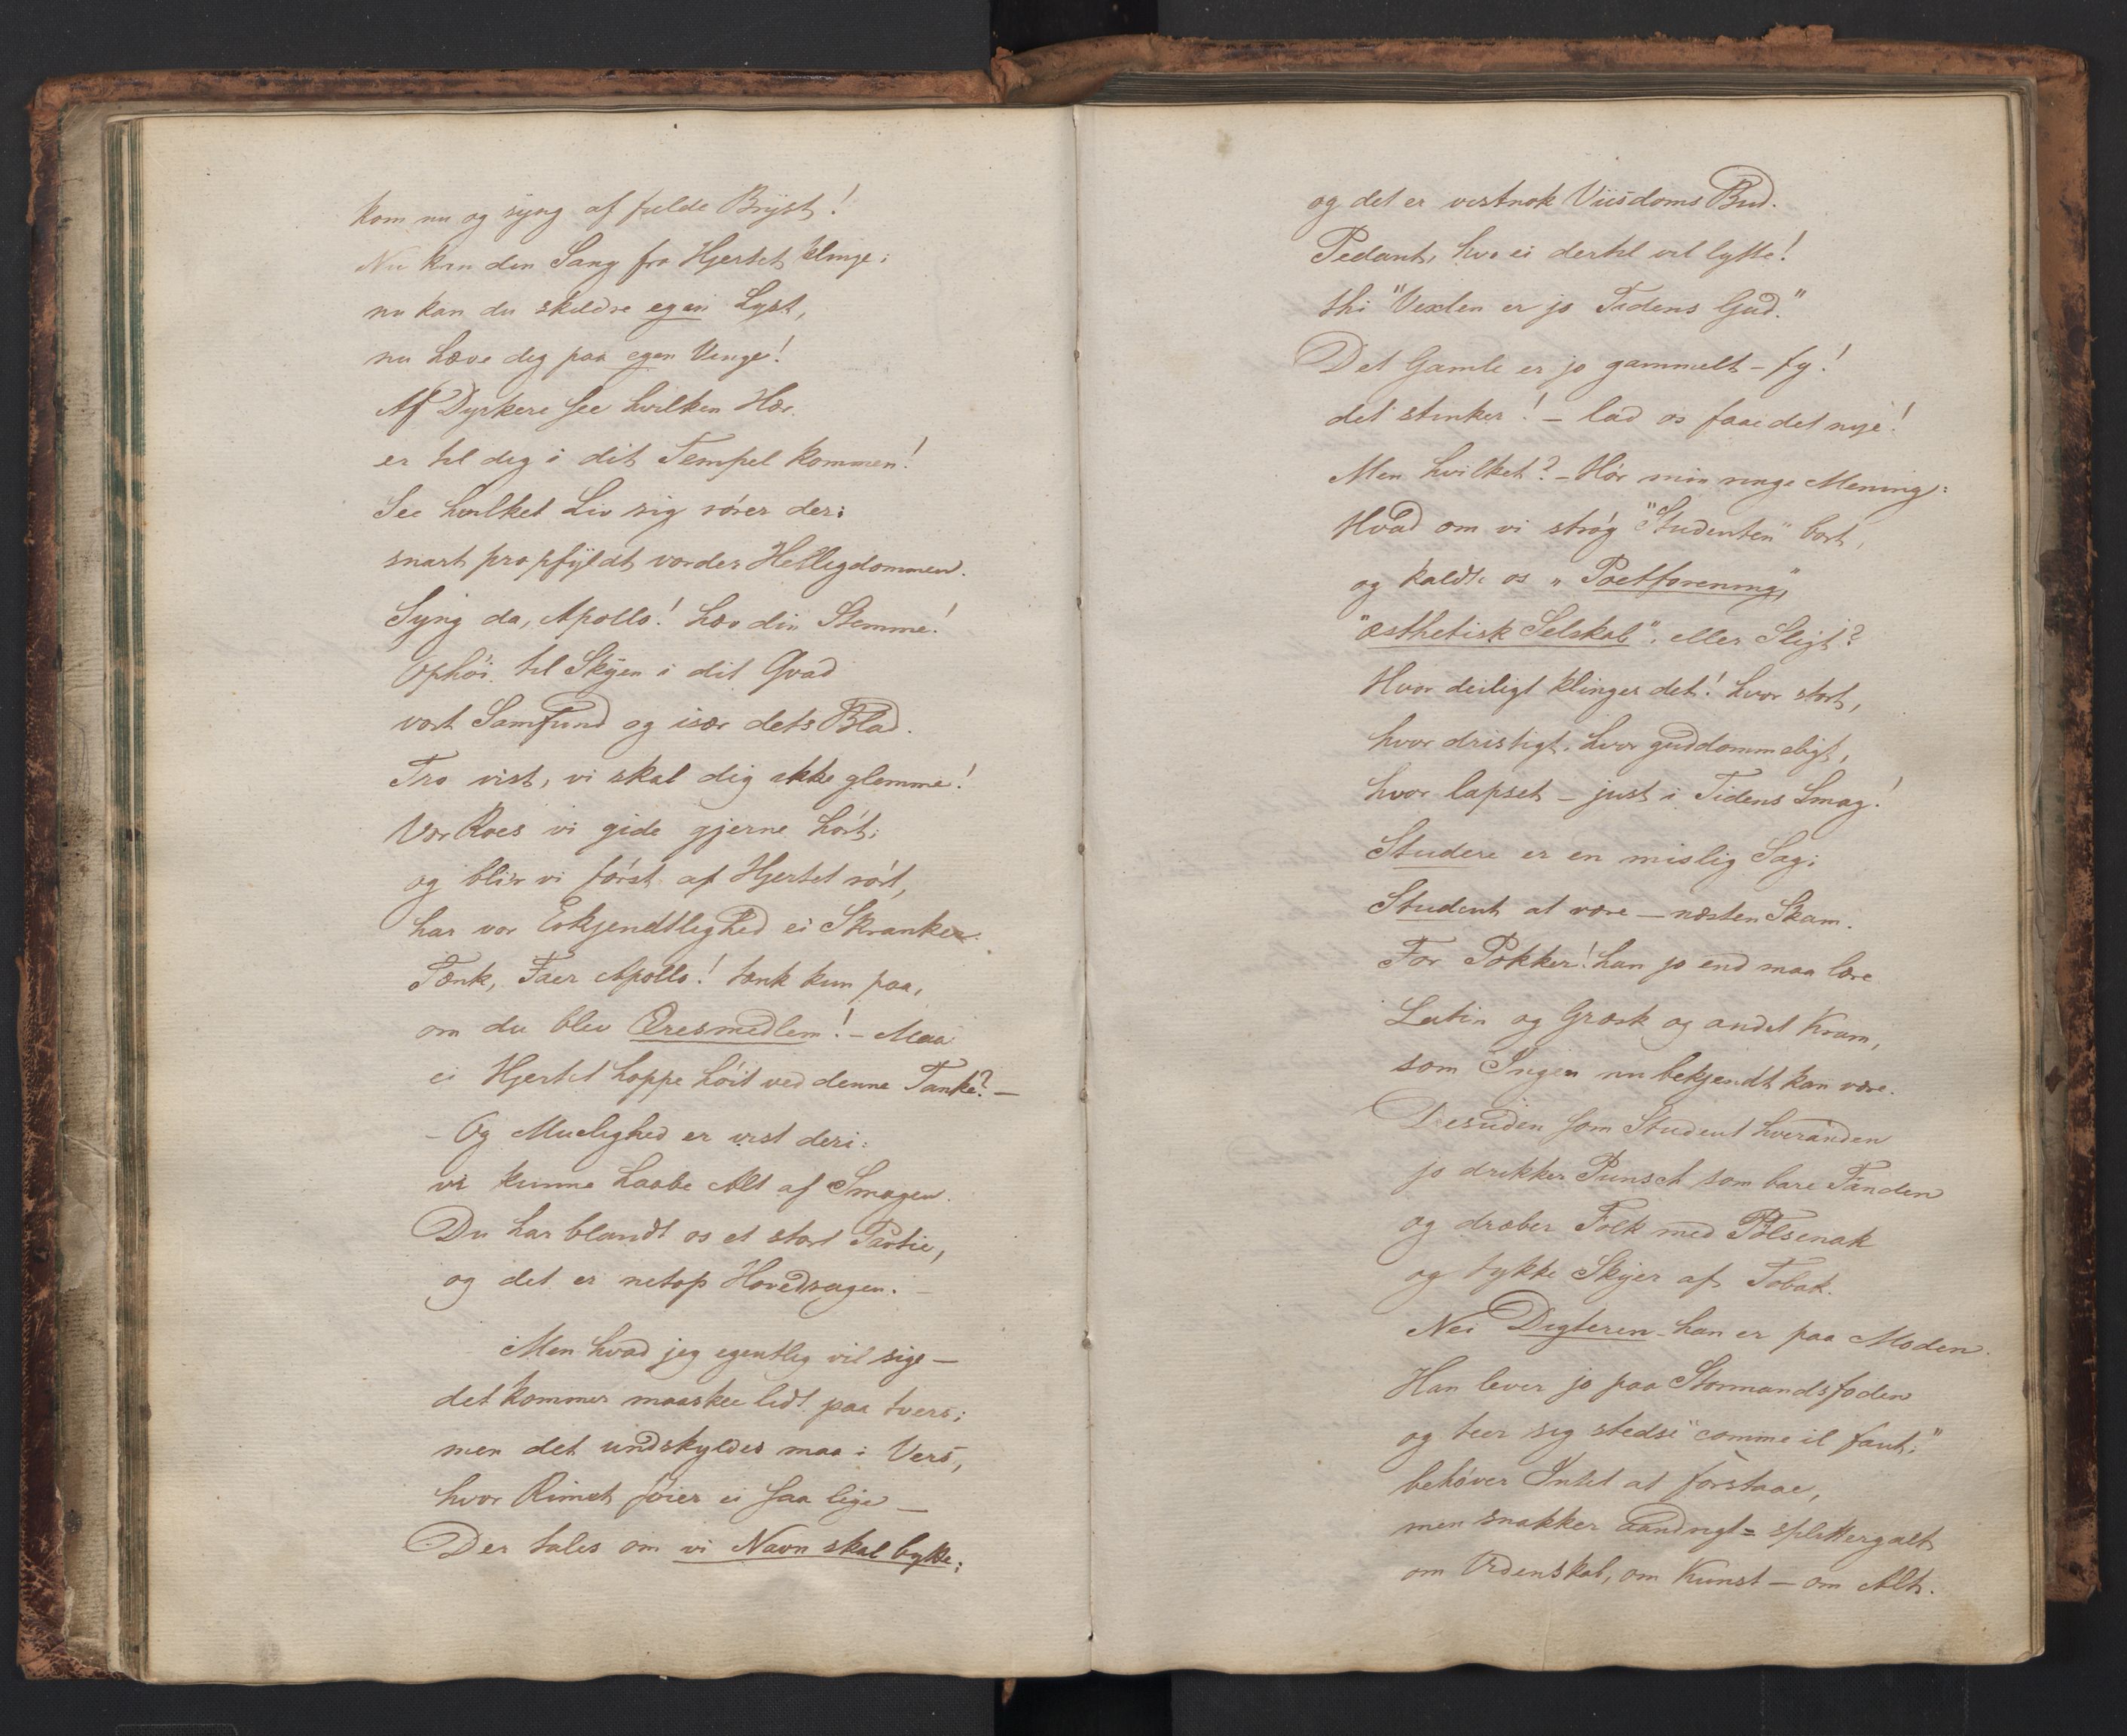 Kom nu og syng af fulde Bryst!
Nu kan den Sang fra Hjertet klinge;
nu kan du skildre egen Lyst,
nu hæve dig paa egen Vinge!
Af Dyrkere see hvilken Hær
er til dig i dit Tempel kommen!
See hvilket Liv sig rører der:
snart propfyldt vorder Helligdommen.
Syng da, Apollo! hæv din Stemme!
Ophøi til Skyen i dit Qvad
vort Samfund og især dets Blad.
Tro vist, vi skal dig ikke glemme!
Vor Roes vi gide gjerne hørt;
og bliv vi først af Hjertet rørt,
har vor Erkjendtlighed ei Skranker.
Tænk, Faer Apollo! tænk kun paa,
om du blev Æresmedlem! – Maa
ei Hjertet hoppe høit ved denne Tanke? –
– Og Muelighed er vist deri:
vi kunne haabe Alt af Smagen.
Du har blandt os et stort Partie,
og det er netop Hovedsagen. –
Men hvad jeg egentlig vil sige –
det kommer maaskee lidt paa tvers;
men det undskyldes maa i Vers,
hvor Rimet føier ei saa lige –
Der tales om vi Navn skal bytte;
og det er vistnok Viisdoms Bud.
Pedant, hvo ei dertil vil lytte!
thi "Vexlen er jo Tidens Gud."
Det Gamle er jo gammelt – fy!
det stinker! – lad os faae det nye!
Men hvilket? – Hør min ringe Mening:
Hvad om vi strøg "Studenten" bort,
og kaldte os "Poetforening,"
"æsthetisk Selskab", eller Sligt?
Hvor deiligt klinger det! hvor stort,
hvor dristigt, hvor guddommeligt,
hvor lapset – just i Tidens Smag!
Studere er en mislig Sag;
Student at være – næsten Skam.
For Pokker! han jo end maa lære
Latin og Græsk og andet Kram,
som Ingen nu bekjendt kan være.
Desuden som Student hveranden
jo drikker Punsch som bare Fanden
og dræber Folk med Pølsesnak
og tykke Skyer af Tobak.
Nei Digteren – han er paa Moden.
Han lever jo paa Stormandsfoden
og teer sig stedse "comme il faut;"
behøver Intet at forstaae,
men snakker aandrigt = splittergalt
om Videnskab, om Kunst – om Alt.